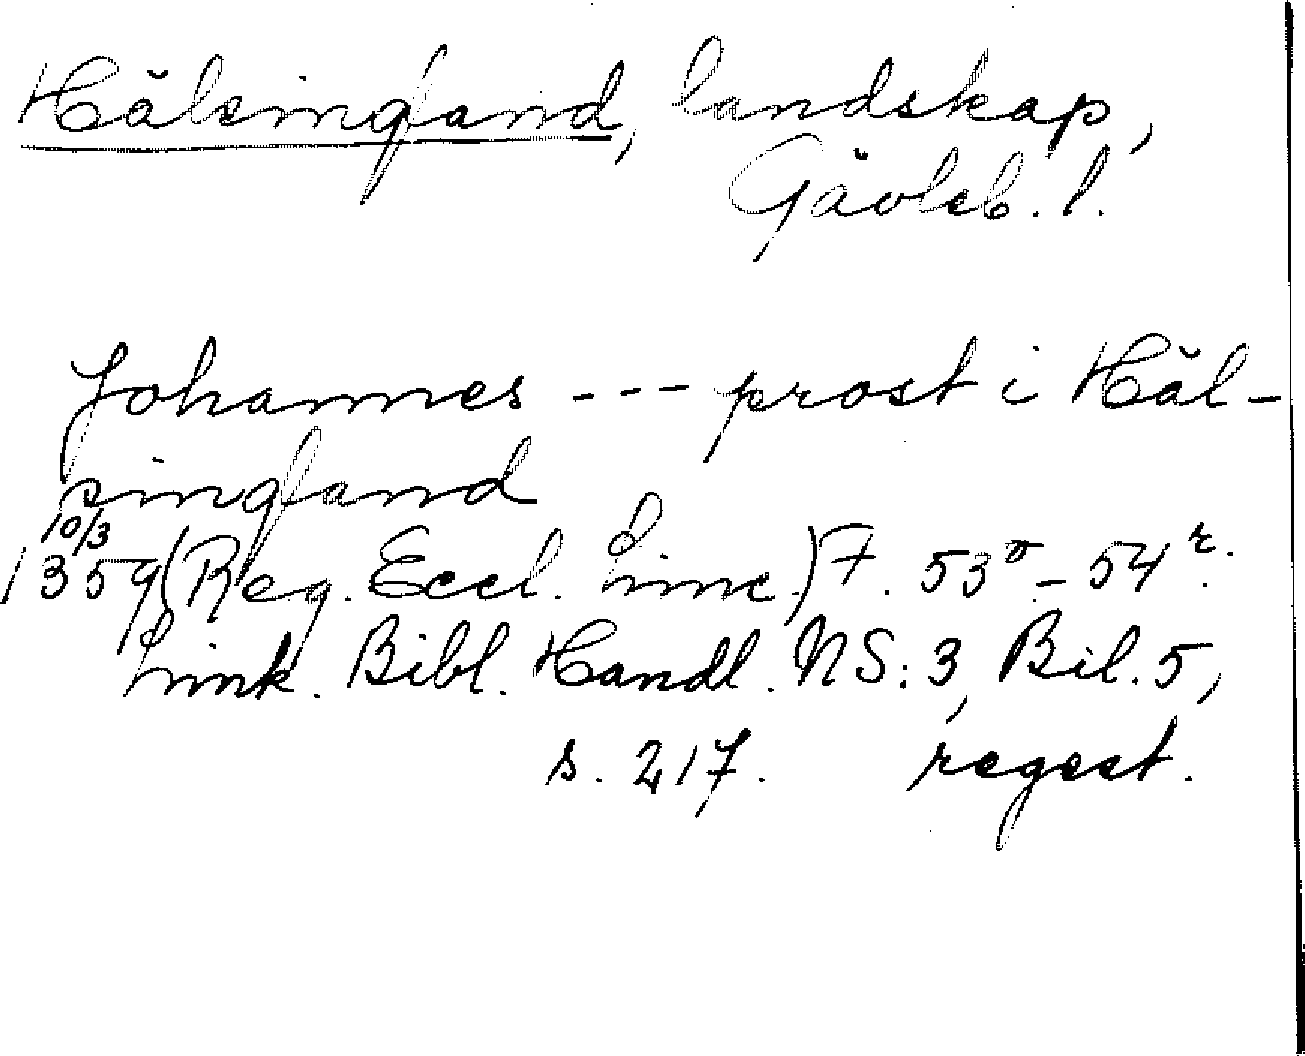 Hälsingland, landskap,
Gävleb. l.
Johannes --- prost i Häl-
singland
10/3
1359 (Reg. Eccl. Linc.) F. 53v - 54r.
Link. Bibl. Handl. NS: 3, Bil. 5,
s. 217. regest.